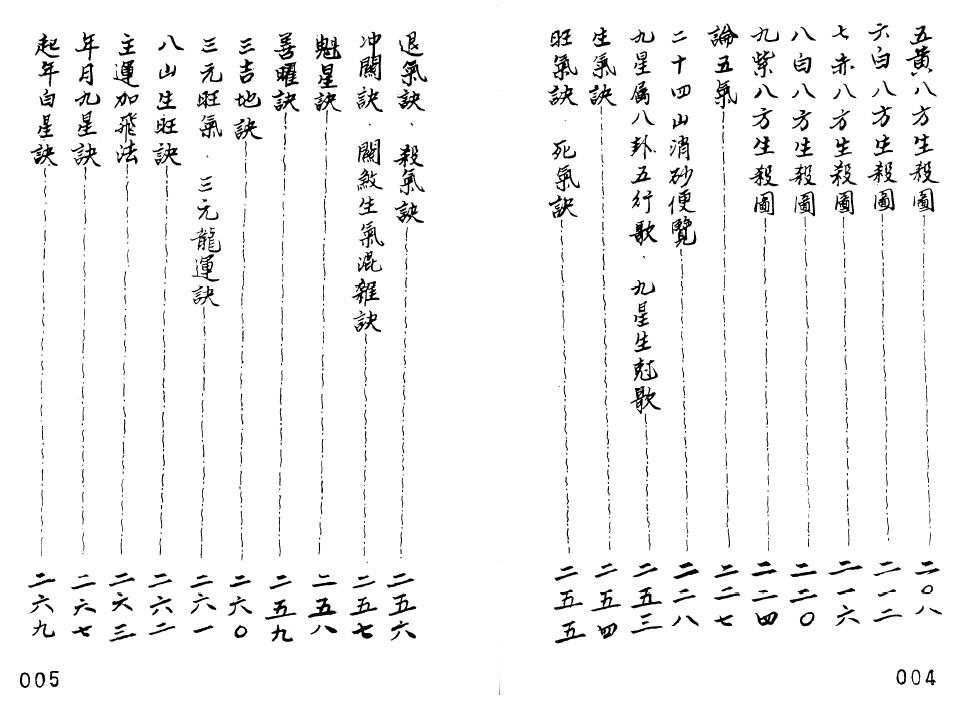 五黃八方生殺圖 二〇八
六白八方生殺圖 二一二
七赤八方生殺圖 二一六
八白八方生殺圖 二二〇
九紫八方生殺圖 二二四
論五氣 二二七
二十四山消砂便覽 二二八
九星屬八卦五行歌．九星生尅歌 二五三
生氣訣 二五四
旺氣訣．死氣訣 二五五
004
退氣訣．殺氣訣 二五六
冲關訣．關敘生氣混雜訣 二五七
魁星訣 二五八
善曜訣 二五九
三吉地訣 二六〇
三元旺氣．三元龍運訣 二六一
八山生旺訣 二六二
主運加飛法 二六三
年月九星訣 二六七
起年白星訣 二六九
005